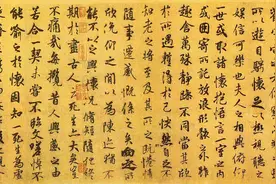 所以遊目騁懷足以極視聽之
娛信可樂也夫人之相與俯仰
一世或取諸懷抱悟言一室之內
或因寄所託放浪形骸之外雖
趣舍萬殊靜躁不同當其欣
於所遇蹔得於己快然自足不
知老之將至及其所之既惓情
隨事遷感慨係之矣向之所
欣俛仰之閒以為陳迹猶不
能不以之興懷況脩短隨化終
期於盡古人云死生亦大矣豈
不痛哉每攬昔人興感之由
若合一契未嘗不臨文嗟悼不
能喻之於懷固知一死生為虛